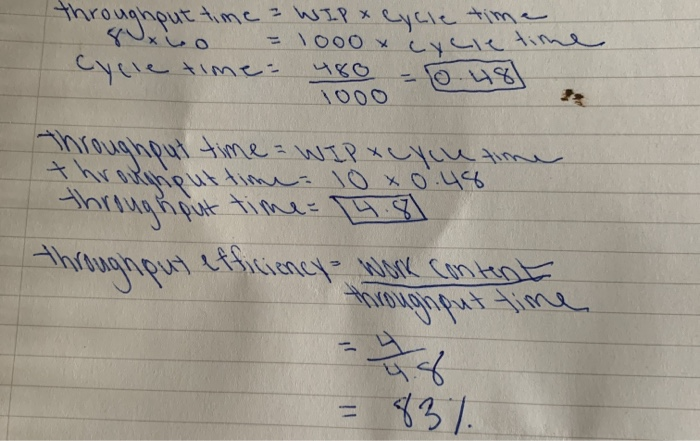 throughput time = WIP × cycle time
8 × 60 = 1000 × cycle time
cycle time = 480/1000 = 0.48
throughput time = WIP × cycle time
throughput time = 10 × 0.48
throughput time = 4.8
throughput efficiency = work content/throughput time
= 4/4.8
= 83%